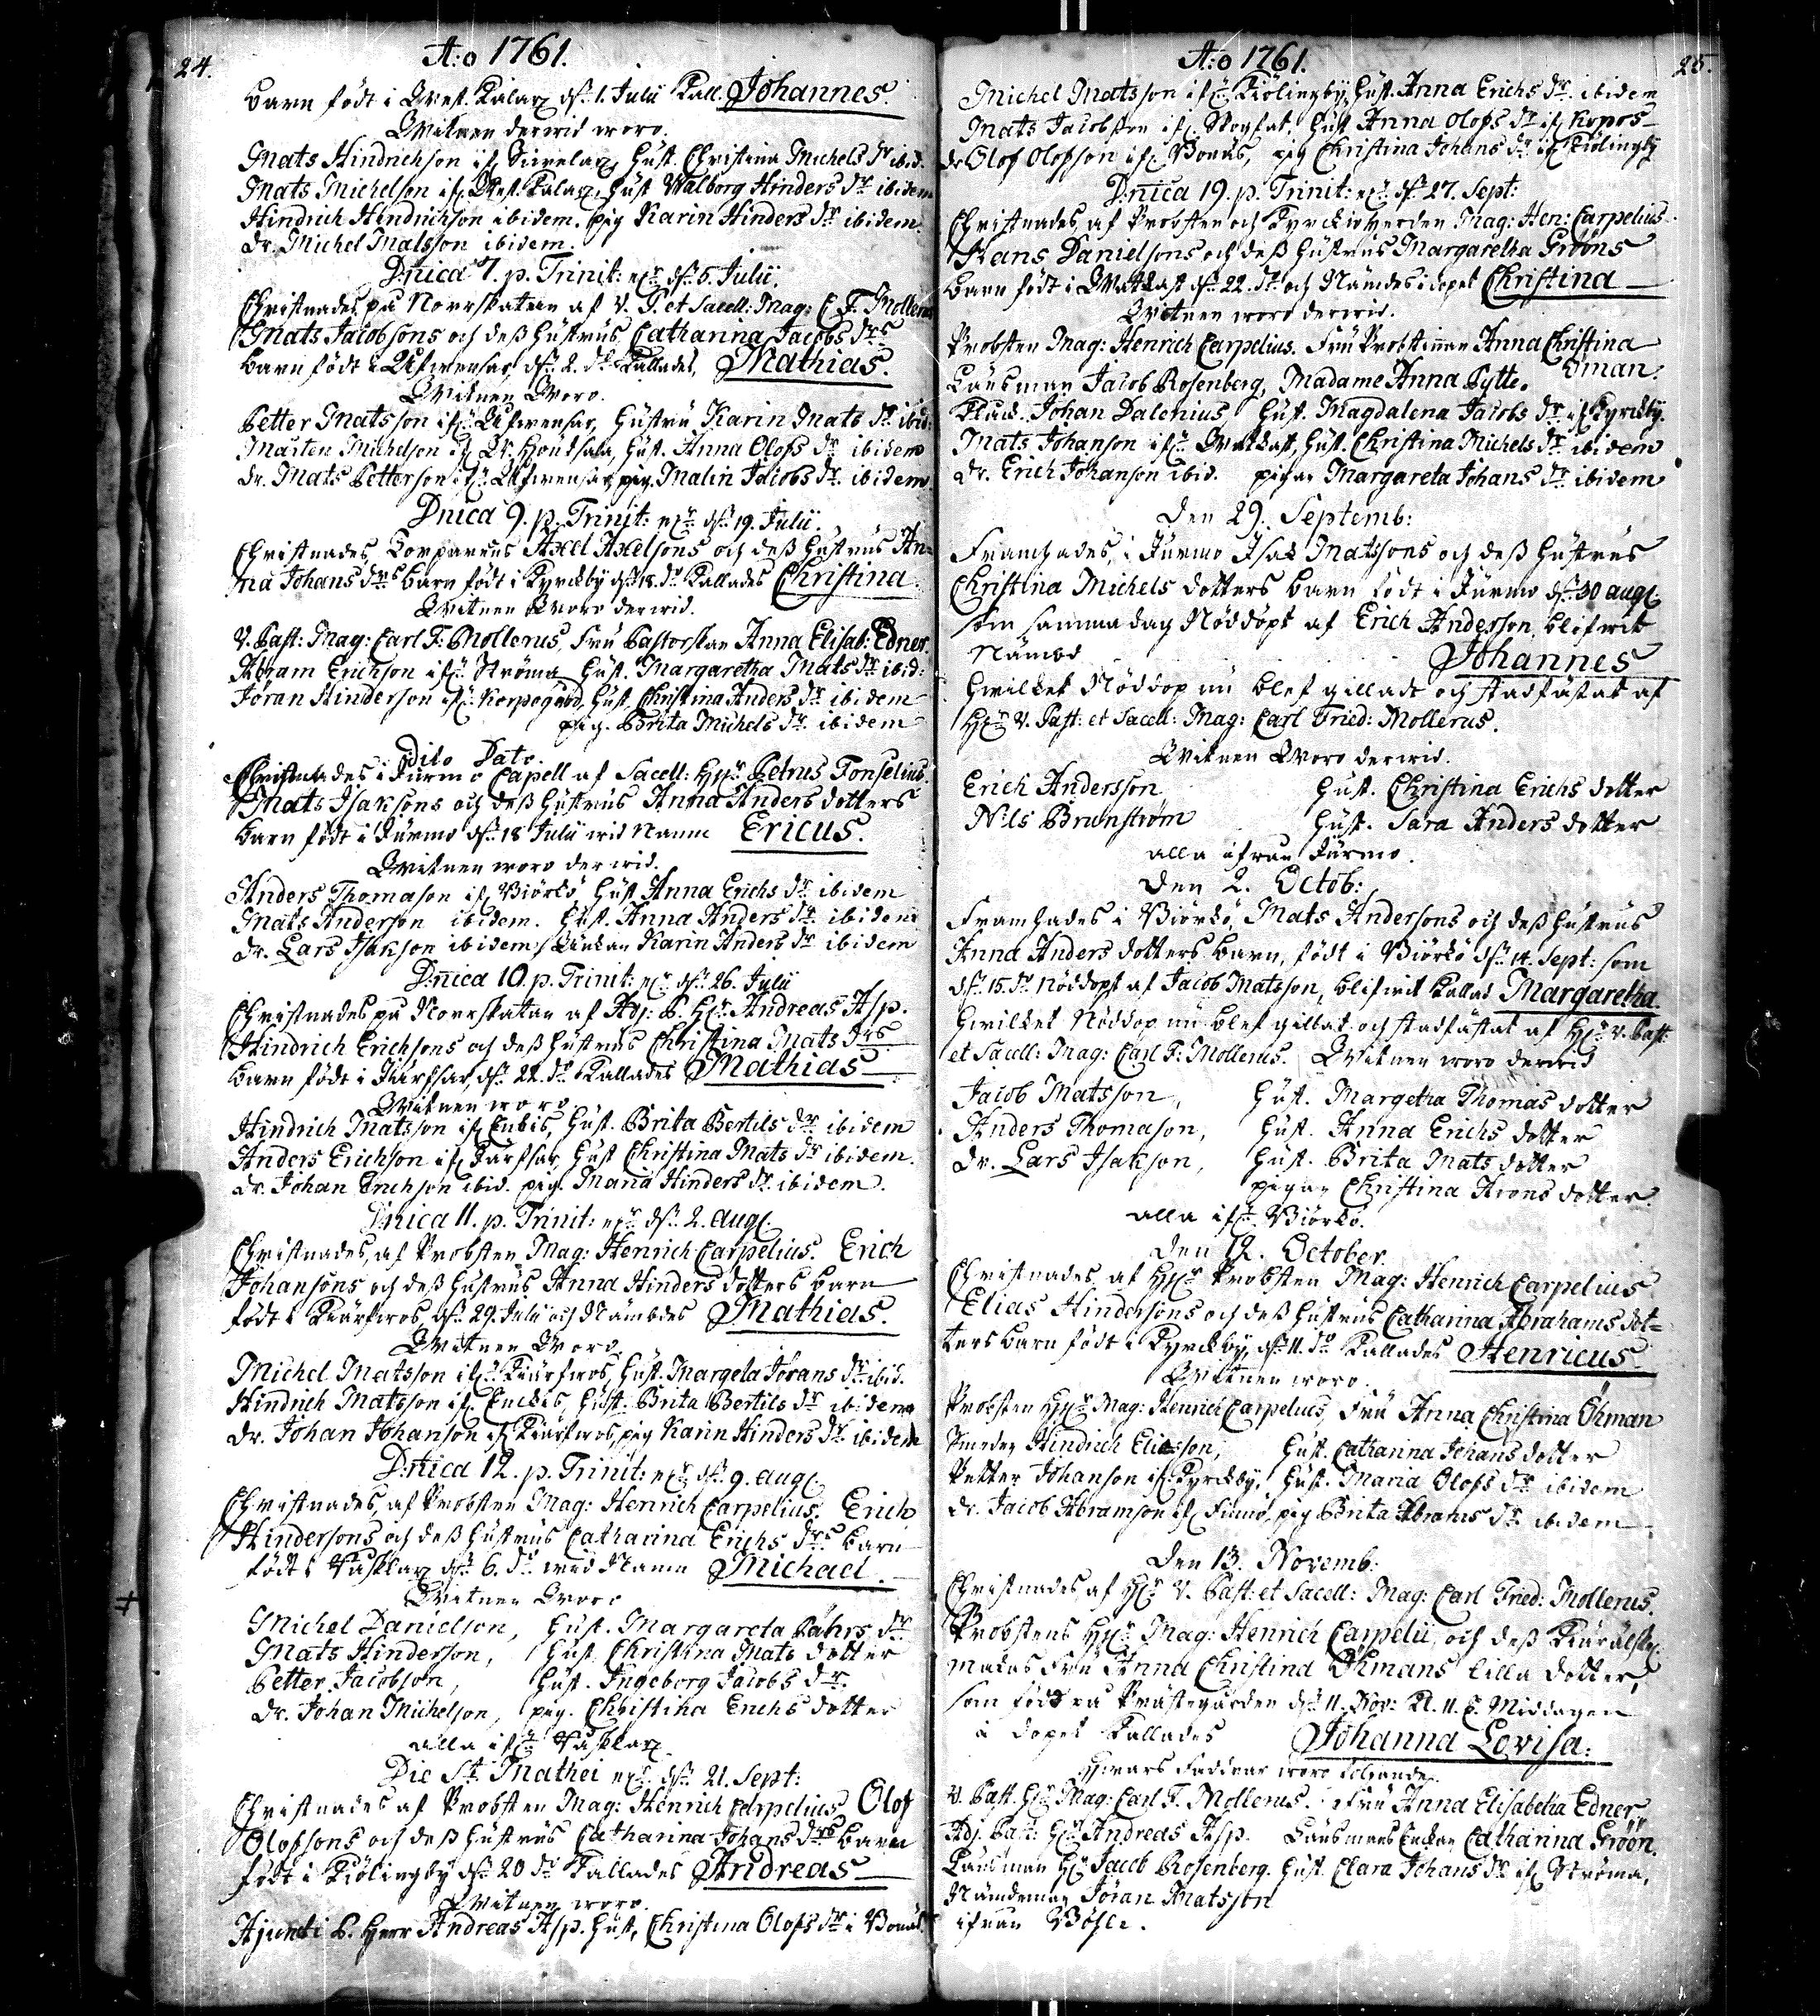 24.
A:o 1761.
Barn födt i West. Kalax d. 1. Julii Kall. Johannes.
Witnen derwid woro.
Mats Hindrichson if. Sirnelax, Hust. Christina Michels dr ibid.
Mats Michelson if. West. Kalax, Hust Walborg Hinders dr ibidem
Hindrich Hindrichson ibidem. pig Karin Hinders dr ibidem
Dr. Michel Matsson ibidem.
Dnica 7. p. Trinit: d. 5. Julii.
Christnades på Norrskatan af V. P. et Sacell: Mag: C. F. Mollerus
Mats Jacobsons och dess Hustrus Catharina Jacobs drs
Barn födt i d. 2. do Kallades, Mathias.
Witnen Woro.
Petter Matsson Hustru Karin Mats dr ibid:
Mårten Michelson Hust. Anna Olofs dr ibidem
dr. Mats Petterson pig. Malin Jacobs dr. ibidem
Dnica 9. p. Trinit: d. 19. Julii.
Christnades Axel Axelsons och dess Hustrus An=
na Johans drs Barn födt i Kyrckby d. 18. do Kallades Christina
Witnen Woro derwid.
V. Past: Mag: Carl F: Mollerus, Fru Pastorskan Anna Elisab: Edner.
Abram Erichson if. Ströma Hust. Margaretha Mats dr ibid:
Jöran Hinderson if. Korpogård, Hust. Christina Anders dr ibidem
pig. Brita Michels dr ibidem
Dito Dato.
Christnades i Jurmo Capell af Sacell: Hr Petrus Tonselius.
Mats Isaksons och dess Hustrus Anna Anders dotters
Barn födt i Jurmo d. 18 Julii wid Namn Ericus.
Witnen woro derwid.
Anders Thomason if. Biörkö Hust Anna Erichs dr ibidem
Mats Anderson ibidem. Hust. Anna Anders dr ibidem
dr. Lars Isakson ibidem, Enkan Karin Anders dr ibidem
Dnica 10. p. Trinit: d. 26. Julii
Christnades på Norrskatan af Adj: P. Hr Andreas Asp.
Hindrich Erichsons och dess Hustrus Christina Mats drs
Barn födt i d. 22. do Kallades Mathias
Witnen woro.
Hindrich Matsson if. Enkis, Hust. Brita Bertils dr ibidem
Anders Erichson if. Hust Christina Mats dr ibidem.
dr. Johan Erichson ibid. pig. Maria Hinders dr ibidem.
Dnica 11. p. Trinit: d. 2. Aug.
Christnades, af Probsten Mag: Henrich Carpelius. Erich
Johansons och dess Hustrus Anna Hinders dotters Barn
födt i d. 29. Julii och Nämdes Mathias.
Witnen Woro
Michel Matsson Hust. Margeta Jörans dr ibid.
Hindrich Matsson if. Enckis, Hust. Brita Bertils dr ibidem
dr. Johan Johanson pig Karin Hinders dr ibidem
Dnica 12. p. Trinit: d. 9. Aug.
Christnades, af Probsten Mag: Henrich Carpelius. Erich
Hindersons och dess Hustrus Catharina Erichs drs Barn
födt i d. 6. do wid Namn Michael.
Witnen Woro
Michel Danielson, Hust. Margareta dr
Mats Hinderson, Hust. Christina Mats dotter
Petter Jacobson, Hust. Ingeborg Jacobs dr.
dr. Johan Michelson, pig. Christina Erichs dotter
alla if.
Die St. Mathei d. 21. Sept:
Christnades af Probsten Mag: Henrich Carpelius Olof
Olofsons och dess Hustrus Catharina Johans drs Barn
födt i Kiölingby d. 20 do Kallades Andreas
Witnen woro.
Ajuncti P. Herr Andreas Asp. Hust. Christina Olofs dr i Bonäs
25.
A:o 1761.
Michel Matsson if. Kiölingby, Hust. Anna Erichs dr. ibidem
Mats Jacobson if. Hust. Anna Olofs dr if.
dr Olof Olofsson if. Bonäs, pig Christina Johans dr if. Kiölingby
Dnica 19. p. Trinit: d. 27. Sept:
Christnades, af Probsten och Kyrckioherden Mag: Hen: Carpelius
Hans Danielsons och dess Hustrus Margaretha Gröns
Barn födt i d. 22. do och Nämdes i dopet Christina
Witnen woro derwid.
Probsten Mag: Henrich Carpelius. Fru Probstinnan Anna Christina
Öman.
Länsman Jacob Rosenberg, Madame Anna Pytte.
Stud. Johan Dalenius Hust. Magdalena Jacobs dr if. Kyrckby.
Mats Johanson if. Hust. Christina Michels dr ibidem
dr. Erich Johanson ibid. pigan Margareta Johans dr ibidem
Den 29. Septemb:
Framhades, i Jurmo Isak Matssons och dess Hustrus
Christina Michels dotters Barn födt i Jurmo d. 30 Aug.
som samma dag Nöddöpt af Erich Anderson, blifwit
Nämd Johannes
Hwilket Nöddop nu blef gillade och stadfästat af
Hr V. Past: et Sacell: Mag: Carl Fried: Mollerus.
Witnen Woro derwid.
Erich Andersson Hust. Christina Erichs dotter
Nils Brunström Hust. Sara Anders dotter
alla ifrån Jurmo.
Den 2. Octob:
Framhades i Biörkö, Mats Andersons och dess Hustrus
Anna Anders dotters Barn, födt i Biörkö d. 14. Sept: som
d. 15. do nöddöpt af Jacob Matsson, blifwit Kallad Margaretha.
Hwilket Nöddop nu blef gillat och stadfästat af Hr V. Past:
et Sacell: Mag: Carl F: Mollerus. Witnen woro derwid
Jacob Matsson, Hust. Margetha Thomas dotter
Anders Thomason, Hust. Anna Erichs dotter
dr. Lars Isakson, Hust. Brita Mats dotter
pigan Christina Arons dotter.
alla if. Biörkö.
Den 12. October.
Christnades af Hr Probsten Mag: Henrich Carpelius
Elias Hindersons och dess Hustrus Catharina Abrahams dot=
ters Barn födt i Kyrckby, d. 11. do Kallades Henricus
Witnen woro.
Probsten Hr Mag: Henrich Carpelius, Fru Anna Christina Öhman
Smeden Hindrich Eliasson, Hust. Catharina Johans dotter
Petter Johanson if. Kyrckby, Hust. Maria Olofs dr ibidem
dr. Jacob Abramson if. Finnö, pig Brita Abrams dr ibidem
Den 13. Novemb:
Christnades af Hr V. Past: et Sacell: Mag: Carl Fried: Mollerus.
Probstens Hr Mag: Henrich Carpelii, och dess Kiärälsk.
makas Fru Anna Christina Öhmans lilla dotter,
som född på Prästegården d. 11. Nov: Kl. 11. f. Middagen
i dopet Kallades Johanna Lovisa.
Hwars Faddrar woro föliande.
V. Past. Hr Mag: Carl F. Mollerus. Fru Anna Elisabetha Edner
Adj. Past: Hr Andreas Asp. Länsmans Enkan Catharina Gröön.
Länsman Hr Jacob Rosenberg. Hust. Clara Johans dr if. Ströma,
Nämdeman Jöran Matsson
ifrån Bösle.